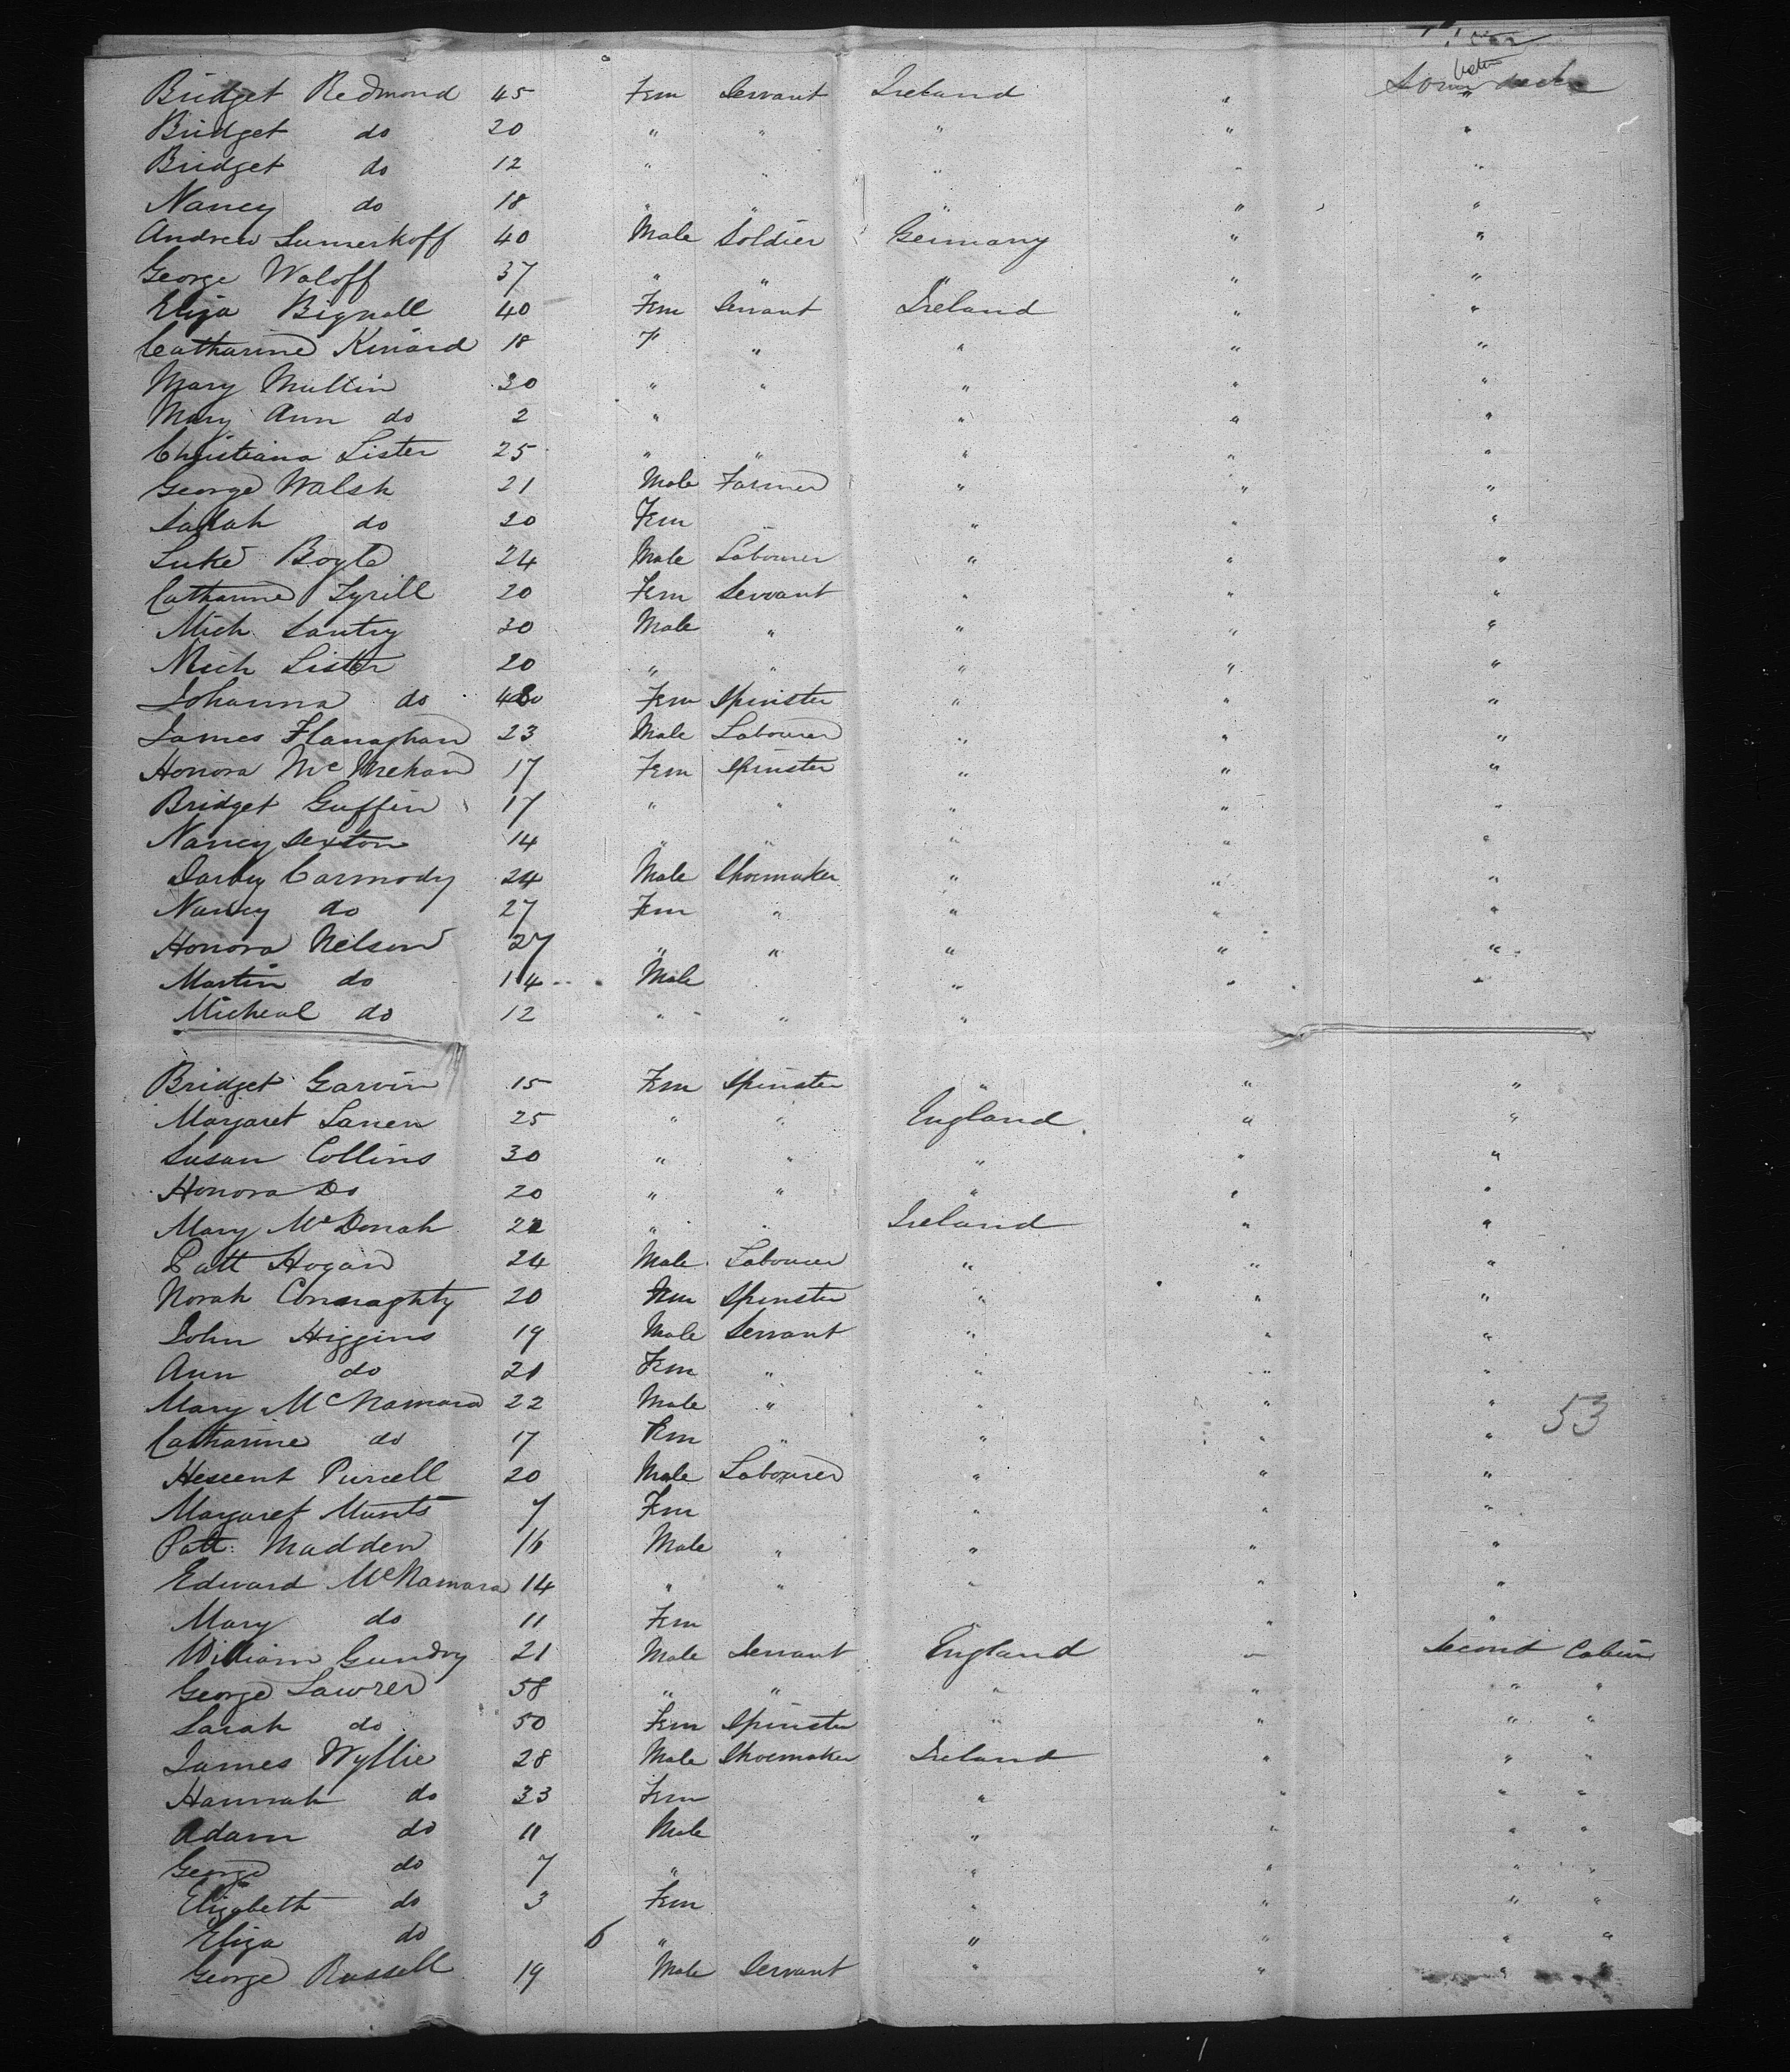 Bridget Redmond 45 Fem Servant Ireland " Lower deck
Bridget do 20 " " " " "
Bridget do 12 " " " " "
Nancy do 18 " " " " "
Andrew Sumerkoff 40 Male Soldier Germany " "
George Waloff 37 " " " " "
Eliza Bignall 40 Fem Servant Ireland " "
Catharine Kinard 18 F " " " "
Mary Mullin 30 " " " " "
Mary Ann do 2 " " " "
Christiana Lister 25 " " " " "
George Walsh 21 Male Farmer " " "
Sarah do 20 Fem " " "
Luke Boyle 24 Male Labourer " " "
Catharine Tyrill 20 Fem Servant " " "
Mich Santry 30 Male " " " "
Mich Lister 20 " " " " "
Johanna do Fem Spinster " " "
James Flanaghan 23 Male Labourer " " "
Honora McMehan 17 Fem Spinster " " "
Bridget Guffin 17 " " " " "
Nancy Sexton 14 " " " " "
Darby Carmody 24 Male Shoemaker " " "
Nancy do 27 Fem " " " "
Honora Nelson 27 " " " " "
Martin do 14 Male " " "
Micheal do 12 " " "
Bridget Garvin 15 Fem Spinster " " "
Margaret Lanen 25 " " England " "
Susan Collins 30 " " " " "
Honora Do 20 " " " " "
Mary McDonah 22 " " Ireland " "
Patt Hogan 24 Male Labourer " " "
Norah Connaghty 20 Fem Spinster " " "
John Higgins 19 Male Servant " " "
Ann do 21 Fem " " " "
Mary McNamara 22 Male " " " "
53
Catharine do 17 Fem " " " "
Purcell 20 Male Labourer " " "
Margaret Munts 7 Fem " " "
Patt: Madden 16 Male " " " "
Edward McNamara 14 " " " " "
Mary do 11 Fem " " "
William Gundry 21 Male Servant England " Second Cabin
George Lawrer 58 " " " " " "
Sarah do 50 Fem Spinster " " " "
James Wyllie 28 Male Shoemaker Ireland " " "
Hannah do 33 Fem " " " "
Adam do 11 Male " " " "
George do 7 " " " " "
Elizabeth do 3 Fem " " " "
Eliza do 6 " " " " "
George Russell 19 Male Servant " " " "